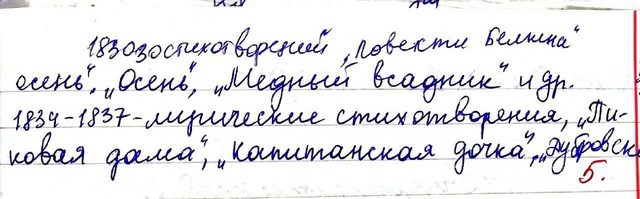 1830 30 стихотворений „Повести Белкина“
осень“, „Осень“, „Медный всадник“ и др.
1834-1837-лирические стихотворения, „Пи-
ковая дама“, „Капитанская дочка“, „Дубровск
5.